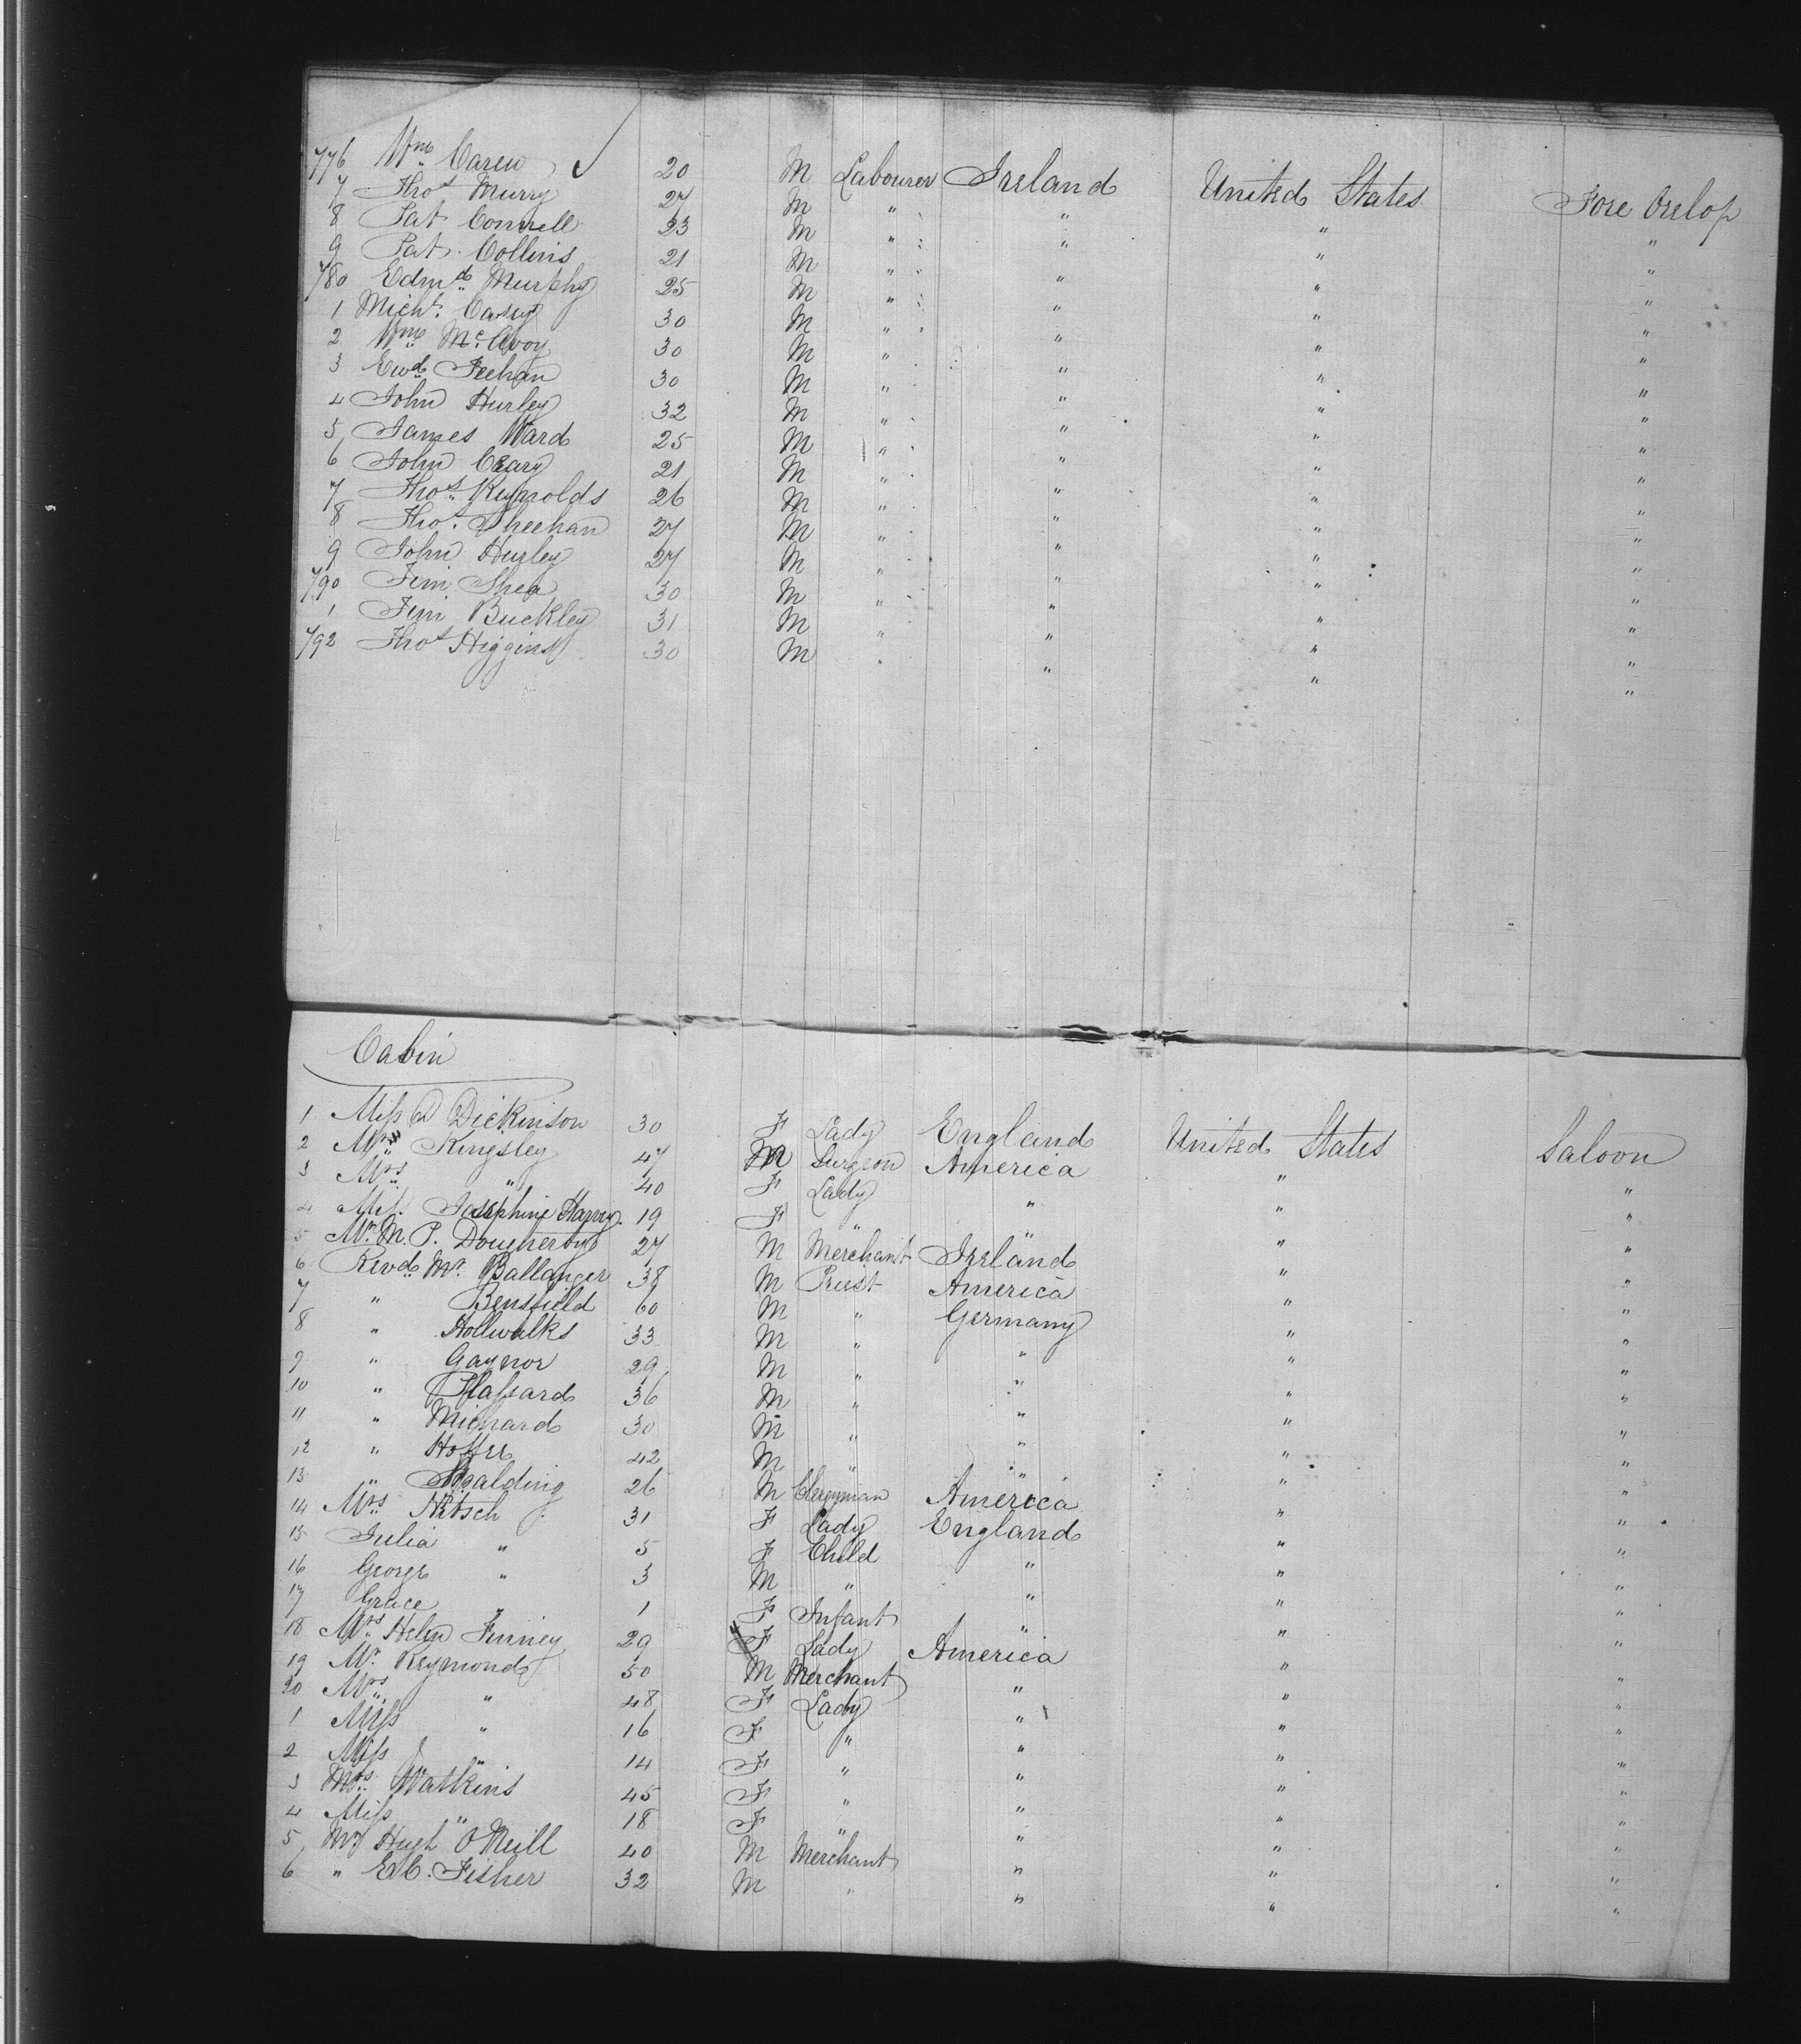 776 Wm Caren 20 M Labourer Ireland United States Fore Orelop
7 Thos Murry 27 M " " " "
8 Pat Connell 23 M " " " "
9 Pat Collins 21 M " " " "
780 Edmd Murphy 25 M " " " "
1 Michl. Casey 30 M " " " "
2 Wm McAvoy 30 M " " " "
3 Ewd Feehan 30 M " " " "
4 John Hurley 32 M " " " "
5 James Ward 25 M " " " "
6 John Crary 21 M " " " "
7 Thos. Reynolds 26 M " " " "
8 Thos. Sheehan 27 M " " " "
9 John Hurley 27 M " " " "
790 Jim Shea 30 M " " " "
1 Jim Buckley 31 M " " " "
792 Thos Higgins 30 M " " " "
Cabin
1 Miss D Dickinson 30 F Lady England United States Saloon
2 Mr Kingsley 47 M Surgeon America " "
3 Mrs " 40 F Lady " " "
4 Josephine Harvey 19 F " " " "
5 Mr. M. P. Dougherty 27 M Merchant Ireland " "
6 Revd Mr. Ballanger 38 M Priest America " "
7 " Bensfield 60 M " Germany " "
8 " Hollwalks 33 M " " " "
9 " Gaynor 29 M " " " "
10 " Hassard 36 M " " " "
11 " Michard 30 M " " " "
12 " Hoffer 42 M " " " "
13 " Spalding 26 M Clergyman America " "
14 Mrs 31 F Lady England " "
15 Julia " 5 F Child " " "
16 George " 3 M " " " "
17 Grace " 1 F Infant " " "
18 Mrs Helen Finney 29 F Lady America " "
19 Mr. Reymond 50 M Merchant " " "
20 Mrs " 48 F Lady " " "
1 Miss " 16 F " " " "
2 Miss " 14 F " " " "
3 Mrs Watkins 45 F " " " "
4 Miss " 18 F " " " "
5 Mr Hugh O'Neill 40 M Merchant " " "
6 " E.C. Fisher 32 M " " " "